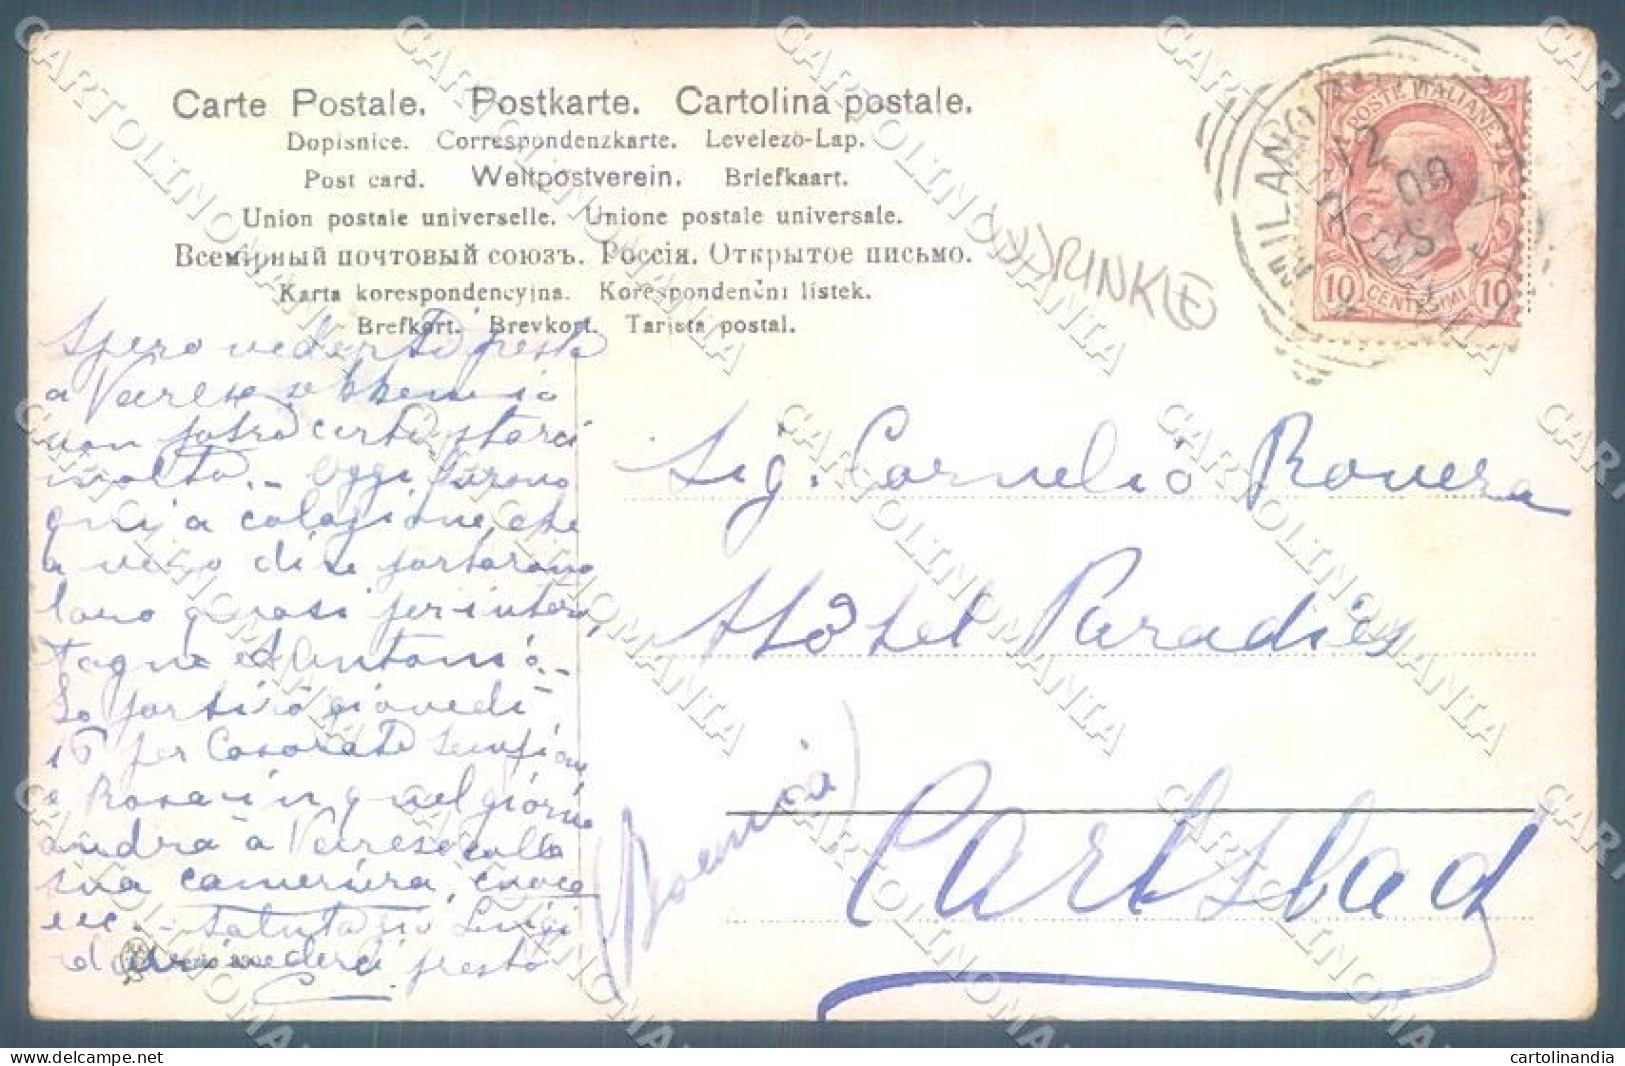 Carte Postale. Postkarte. Cartolina postale.
Dopisnice. Correspondenzkarte. Levelezö-Lap.
Post card. Weltpostverein. Briefkaart.
Union postale universelle. Unione postale universale.
Всемірный почтовый союзъ. Россія. Открытое письмо.
Karta korespondencyjna. Korespondenčni listek.
Brefkort. Brevkort. Tarjeta postal.
MILANO
12
09
POSTE ITALIANE
10 CENTESIMI 10
Spero vederti presto
a Varese sebbene io
non potrò certo starci
molto. - Oggi furono
qui a colazione, che
a vece di se portarono
per intero,
ed Antonio. -
Io partirò giovedì
16 per Casorate Sempione
e Rosa in quel giorno
andrà a Varese colla
sua cameriera, cuoca
ecc. - Saluta zio Luigi
ed arrivederci presto
Sig. Cornelio Rovera
Hôtel Paradies
(Boemia)
Carlsbad
CARTOLINOMANIA
cartolinandia.com/it
cartolinandia